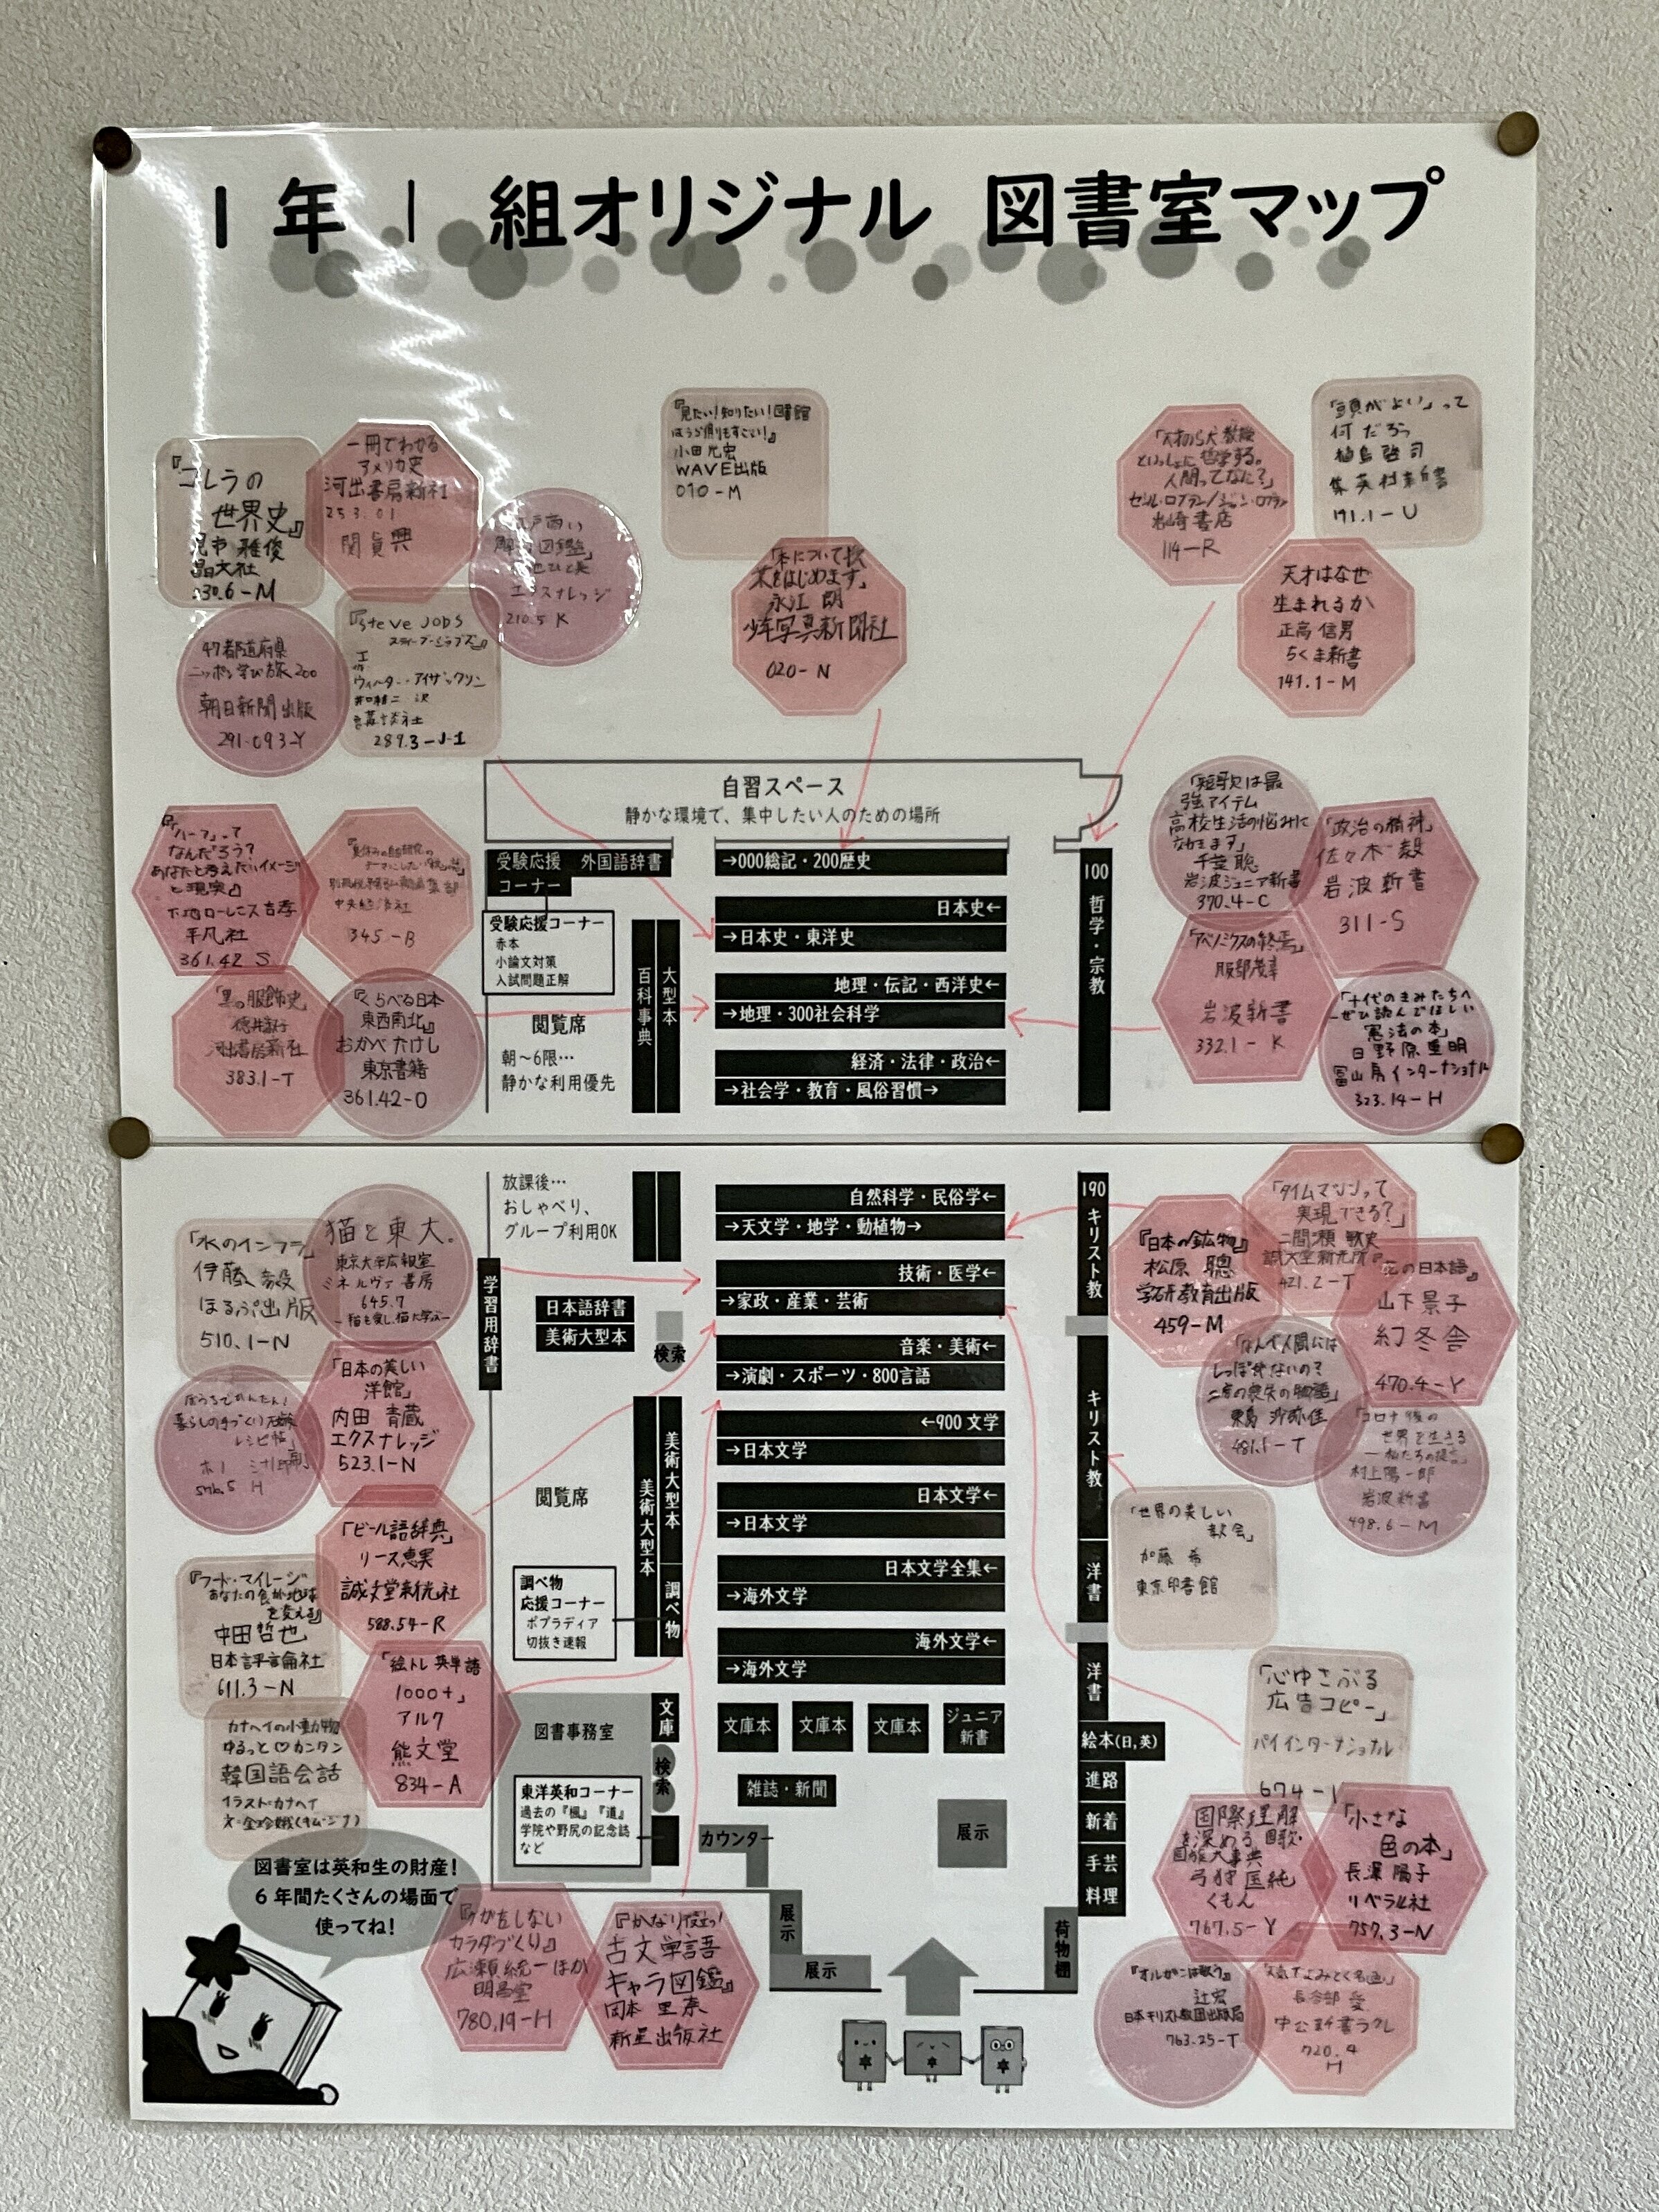 1年1組オリジナル 図書室マップ
『コレラの
世界史』
見市 雅俊
晶文社
一冊でわかる
アメリカ史
河出書房新社
253.01
関眞興
解剖図鑑」
エクスナレッジ
210.5 K
47都道府県
ニッポン学び旅200
朝日新聞出版
291.093-Y
『Steve Jobs
スティーブ・ジョブズ』
ウォルター・アイザックソン
井口耕二 訳
講談社
289.3-J-1
『見たい!知りたい!図書館
WAVE出版
010-M
「本について授
業をはじめます」
永江 朗
少年写真新聞社
020-N
いっしょに哲学する。
人間ってなに?」
岩崎書店
114-R
「頭がよい」って
何だろう
植島啓司
集英社新書
141.1-U
天才はなぜ
生まれるか
正高信男
ちくま新書
141.1-M
『「ハーフ」って
なんだろう?
あなたと考えたいイメージ
と現実』
下地ローレンス吉孝
平凡社
361.42 S
中央経済社
345-B
「黒の服飾史」
徳井淑子
河出書房新社
383.1-T
『くらべる日本
東西南北』
おかべたけし
東京書籍
361.42-O
「短歌は最
強アイテム
高校生活の悩みに
千葉 聡
岩波ジュニア新書
370.4-C
「政治の精神」
佐々木 毅
岩波新書
311-S
「アベノミクスの終焉」
服部茂幸
岩波新書
332.1-K
「十代のきみたちへ
ーぜひ読んでほしい
憲法の本」
日野原重明
冨山房インターナショナル
323.14-H
自習スペース
静かな環境で、集中したい人のための場所
受験応援
コーナー
外国語辞書
受験応援コーナー
赤本
小論文対策
入試問題正解
閲覧席
朝～6限…
静かな利用優先
百科事典
大型本
→000総記・200歴史
日本史←
→日本史・東洋史
地理・伝記・西洋史←
→地理・300社会科学
経済・法律・政治←
→社会学・教育・風俗習慣→
100 哲学・宗教
放課後…
おしゃべり、
グループ利用OK
自然科学・民俗学←
→天文学・地学・動植物→
技術・医学←
→家政・産業・芸術
音楽・美術←
→演劇・スポーツ・800言語
←900 文学
→日本文学
日本文学←
→日本文学
日本文学全集←
→海外文学
海外文学←
→海外文学
190 キリスト教
キリスト教
洋書
洋書
学習用辞書
日本語辞書
美術大型本
検索
閲覧席
美術大型本
美術大型本
調べ物
調べ物
応援コーナー
ポプラディア
切抜き速報
「水のインフラ」
伊藤 毅
ほるぷ出版
510.1-N
猫と東大。
東京大学広報室
ミネルヴァ書房
645.7
ー猫を愛し、猫に学ぶー
おうちでかんたん!
レシピ帖
「日本の美しい
洋館」
内田 青蔵
エクスナレッジ
523.1-N
「ビール語辞典」
リース恵実
誠文堂新光社
588.54-R
『フード・マイレージ
あなたの食が地球
を変える』
中田哲也
日本評論社
611.3-N
「絵トレ 英単語
1000+」
アルク
熊文堂
834-A
カナヘイの小動物
ゆるっと♡カンタン
韓国語会話
イラスト:カナヘイ
「タイムマシンって
実現できる?」
二間瀬 敏史
421.2-T
『日本の鉱物』
松原 聰
学研教育出版
459-M
花の日本語』
山下景子
幻冬舎
470.4-Y
「なんで人間には
しっぽがないの?
東島 沙弥佳
481.1-T
「コロナ後の
世界を生きる
ー私たちの提言」
村上陽一郎
岩波新書
498.6-M
「世界の美しい
教会」
加藤 希
東京印書館
「心ゆさぶる
広告コピー」
パイインターナショナル
国際理解
を深める 国歌・
国旗大事典
弓狩匡純
くもん
767.5-Y
「小さな
色の本」
長澤 陽子
リベラル社
757.3-N
『オルガンは歌う』
辻宏
日本キリスト教団出版局
763.25-T
長谷部 愛
中公新書ラクレ
720.4
H
図書事務室
文庫
検索
文庫本
文庫本
文庫本
ジュニア
新書
雑誌・新聞
絵本(日,英)
進路
新着
手芸
料理
東洋英和コーナー
過去の『楓』『道』
学院や野尻の記念誌
など
カウンター
展示
展示
展示
荷物棚
図書室は英和生の財産!
6年間たくさんの場面で
使ってね!
『ケガをしない
カラダづくり』
広瀬統一ほか
780.19-H
『かなり役立つ!
古文単語
キャラ図鑑』
岡本 里奈
新星出版社